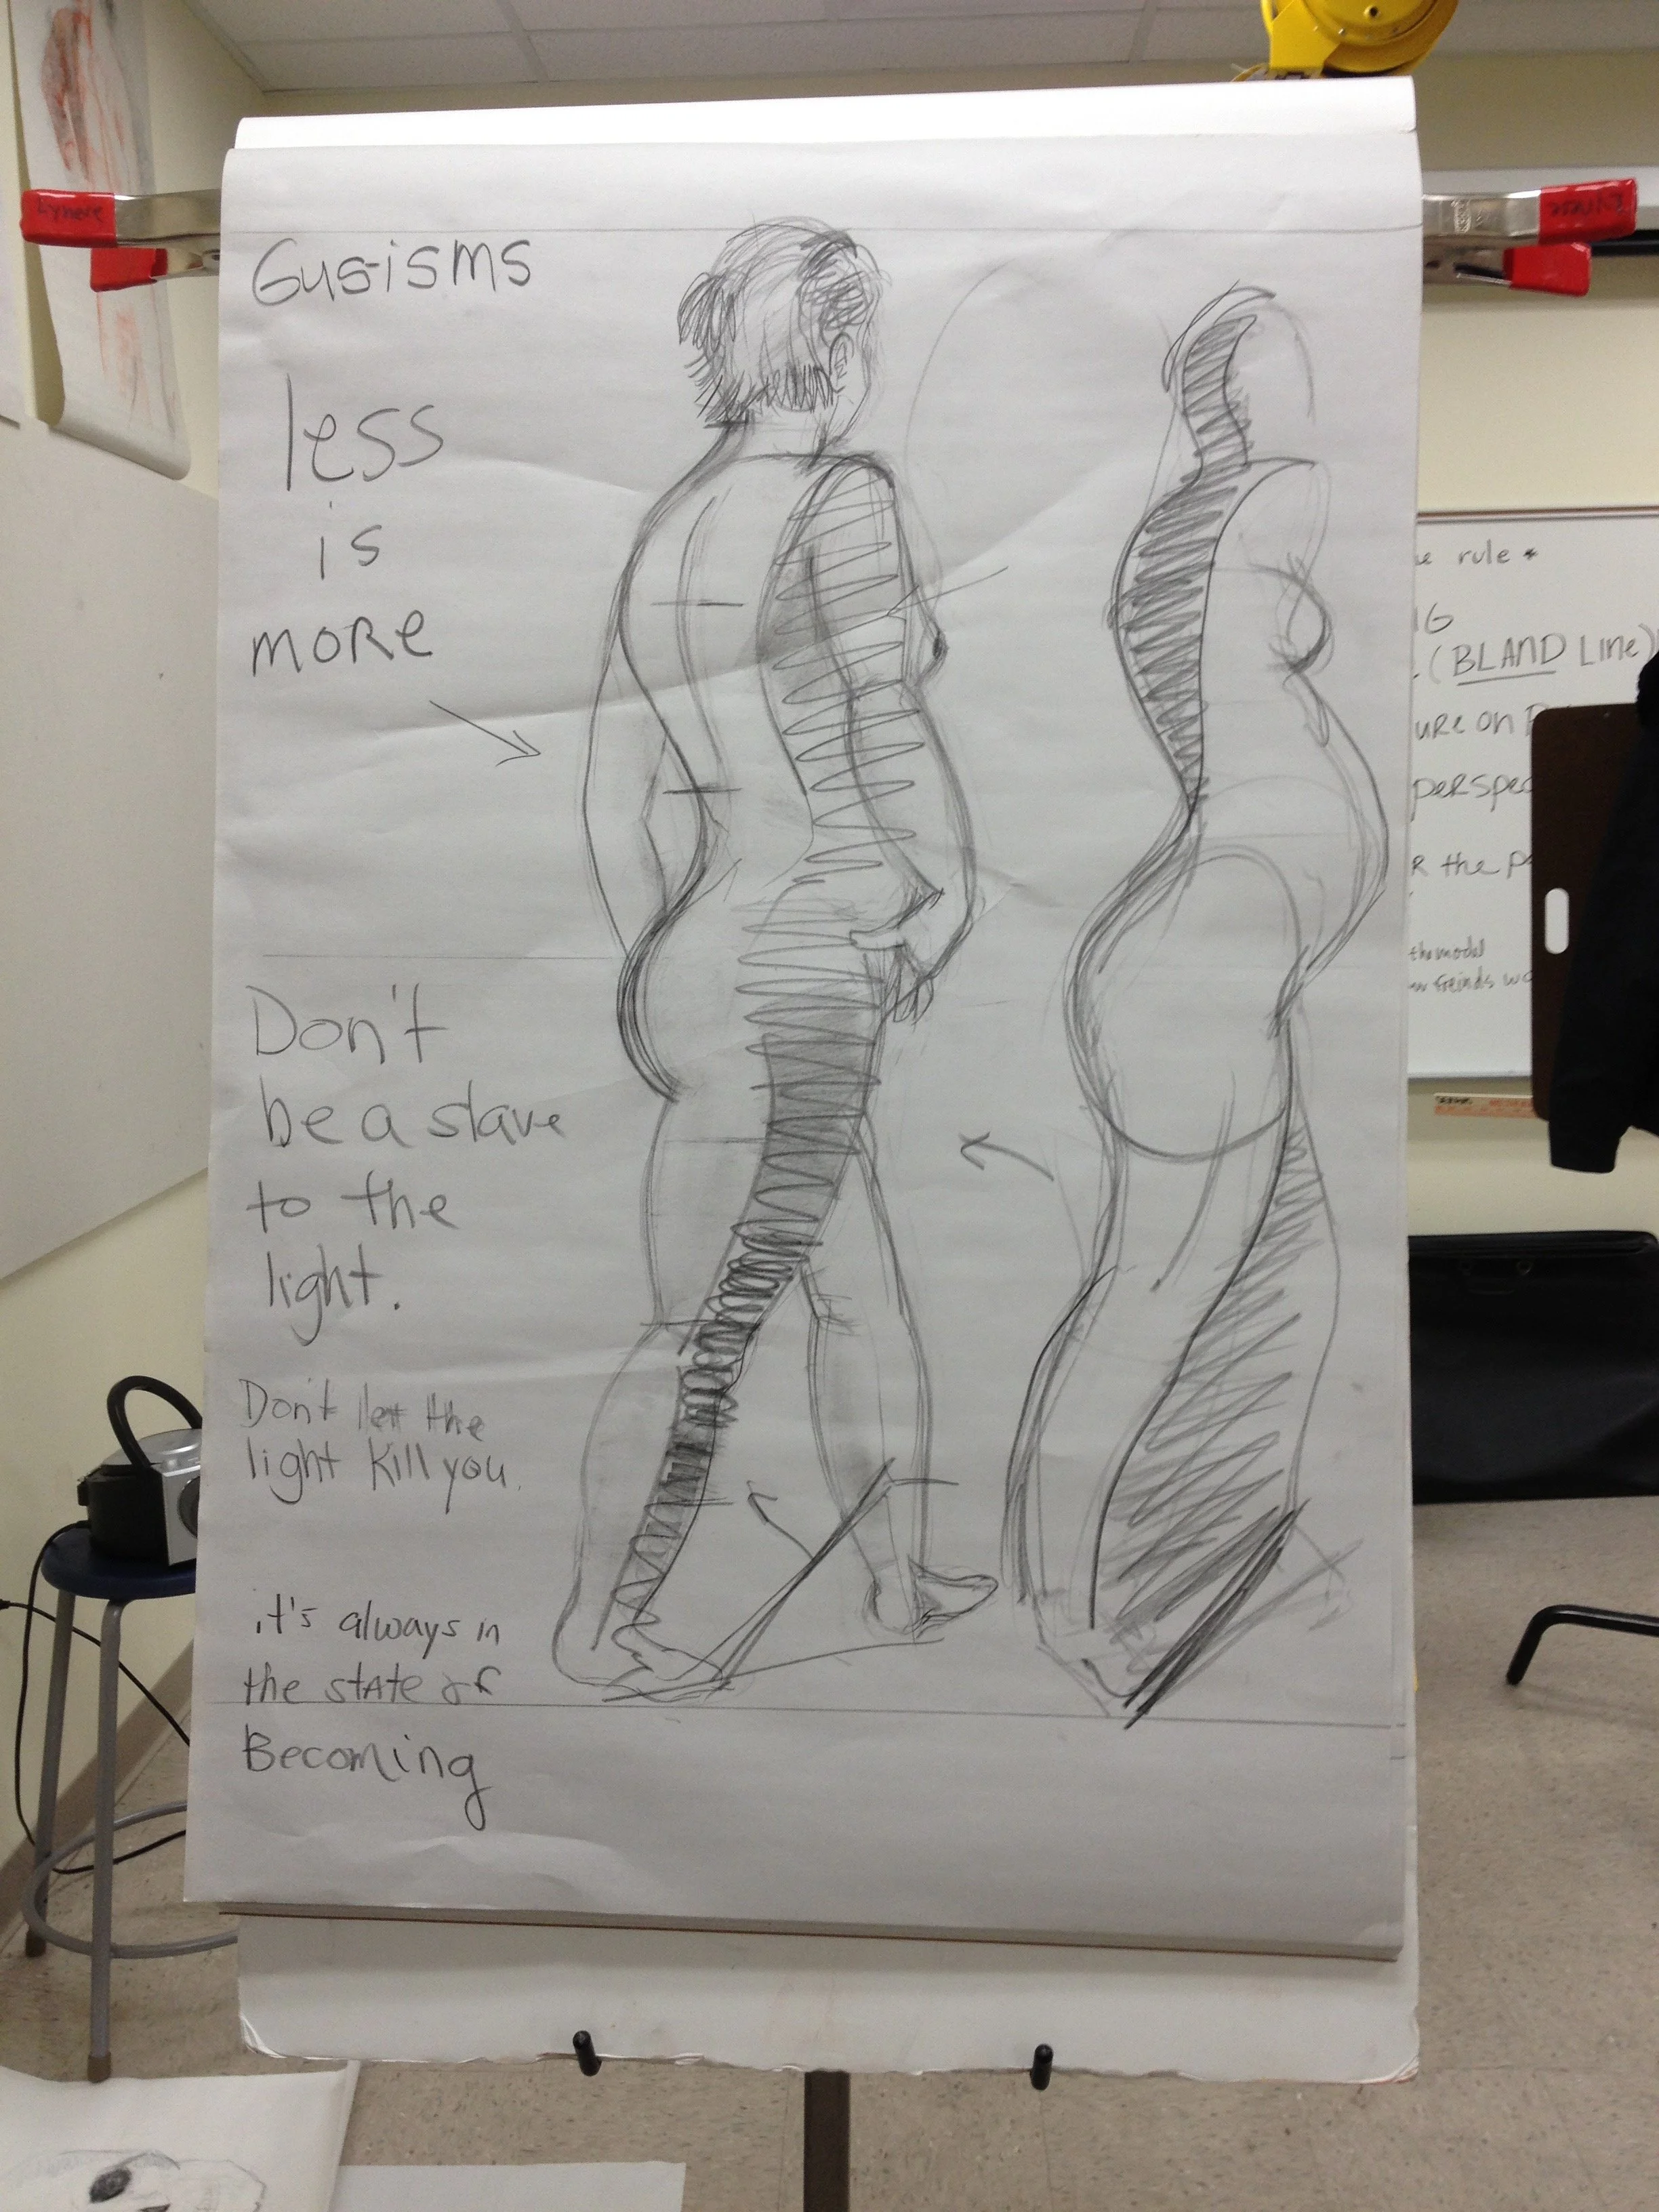 Gus-isms
less
is
more
Don't
be a slave
to the
light.
Don't let the
light kill you.
it's always in
the state of
Becoming
rule *
(BLAND Line)
on
the
the model